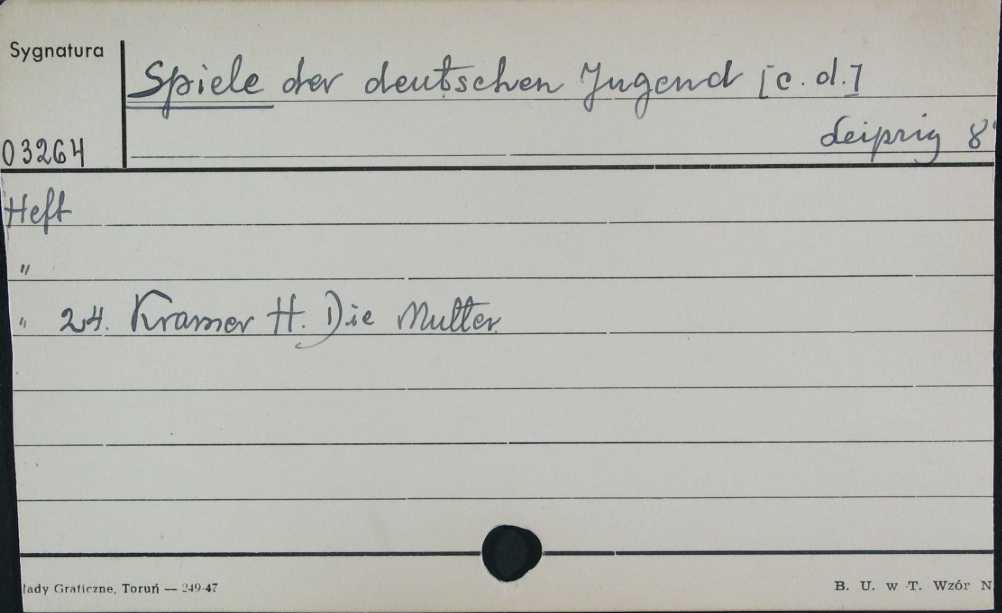 Sygnatura
Spiele der deutschen Jugend [c.d.]
Leipzig 8°
03264
Heft
"
" 24. Kramer H. Die Mutter
łady Graficzne, Toruń — 249-47
B. U. w T. Wzór N